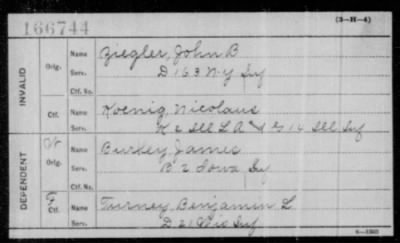 166744
(3-H-4)
INVALID
Orig.
Name Ziegler, John B
Serv. D 163 N-Y Inf
Ctf. No.
Ctf.
Name Koenig, Nicolaus
Serv. K 2 Ill L A & G 14 Ill Inf
DEPENDENT
W
Orig.
Name Burkey, James
Serv. B 2 Iowa Inf
Ctf. No.
Ctf.
Name Turney, Benjamin L
Serv. D 21 Inf